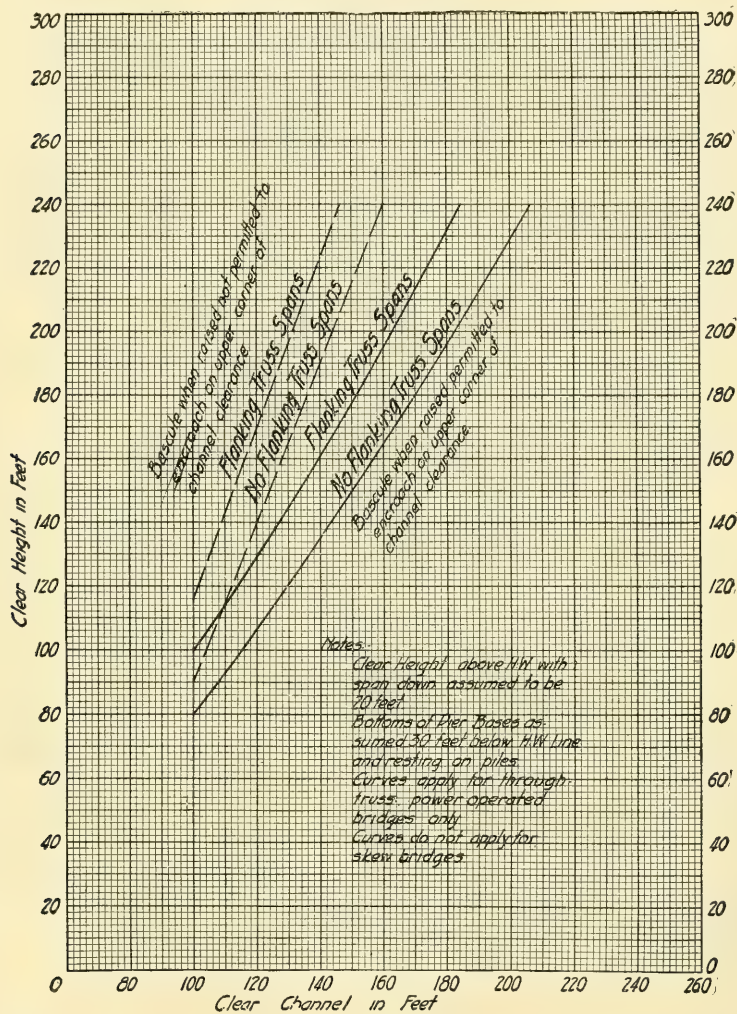 300
280
260
240
220
200
180
160
140
120
100
80
60
40
20
0
Clear Height in Feet
300
280
260
240
220
200
180
160
140
120
100
80
60
40
20
0
Bascule when raised not permitted to
encroach on upper corner of
channel clearance
Flanking Truss Spans
No Flanking Truss Spans
Flanking Truss Spans
No Flanking Truss Spans
Bascule when raised permitted to
encroach on upper corner of
channel clearance
Notes:-
Clear Height above HW with
span down assumed to be
20 feet
Bottoms of Pier Bases as-
sumed 30 feet below H.W. Line
and resting on piles.
Curves apply for through-
truss, power operated
bridges only
Curves do not apply for
skew bridges
0 80 100 120 140 160 180 200 220 240 260
Clear Channel in Feet